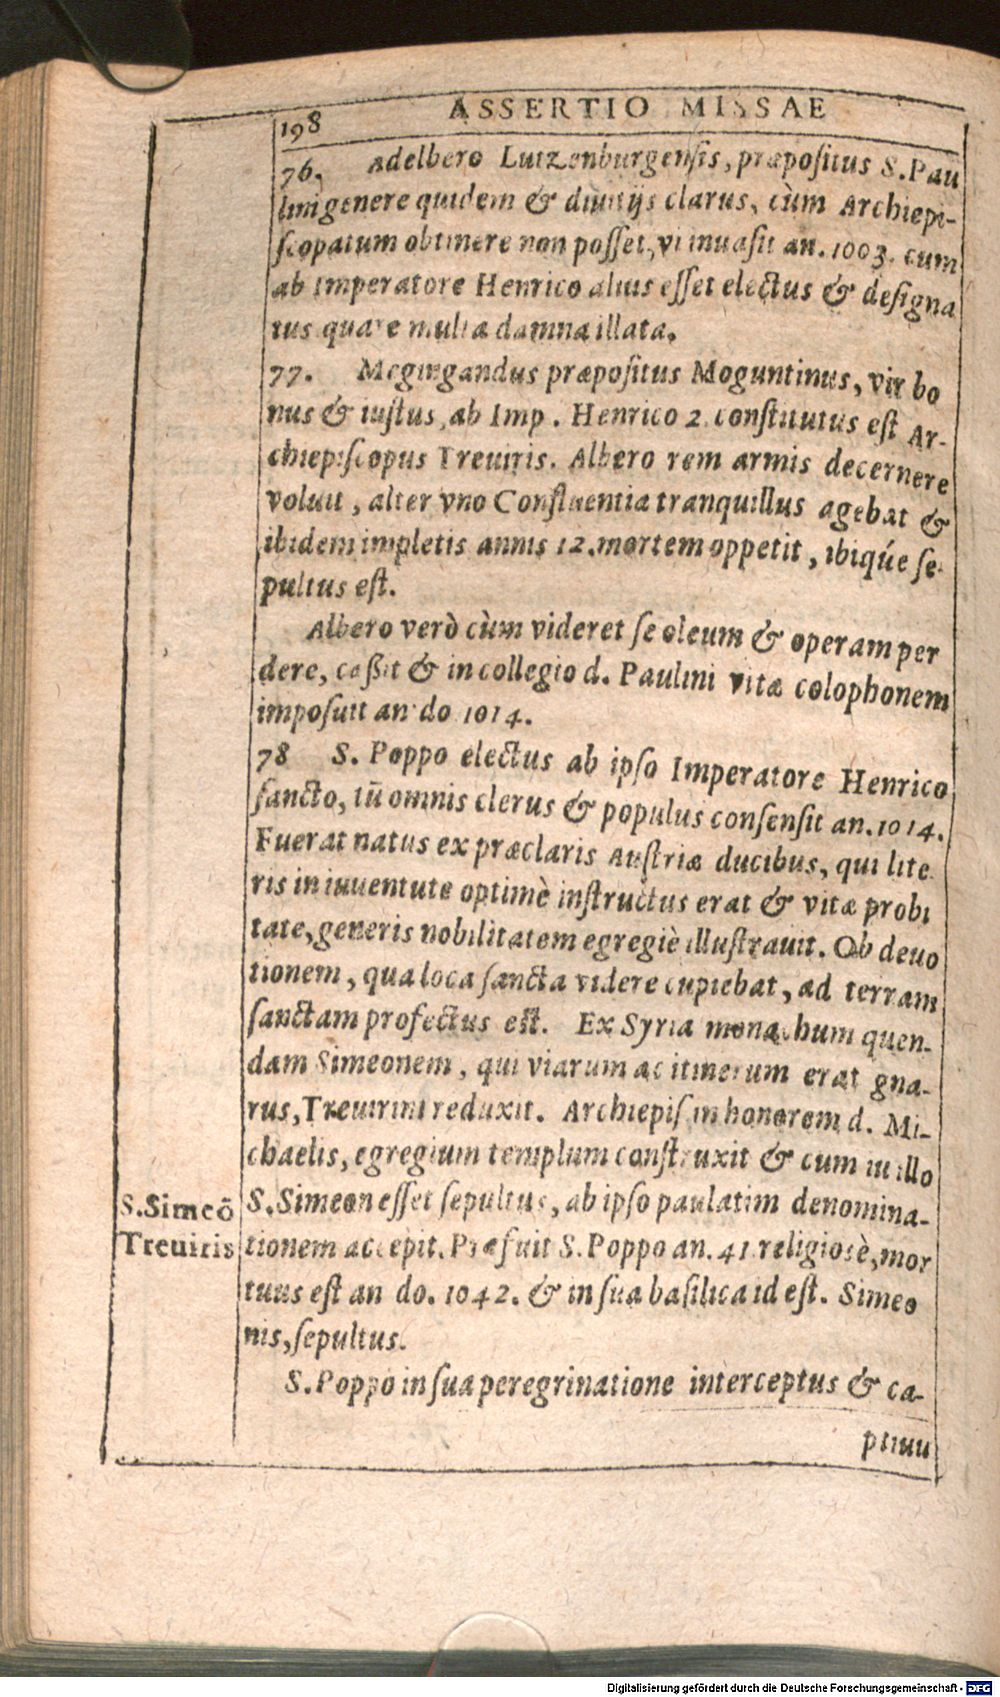 198
ASSERTIO MISSAE
76. Adelbero Lutzenburgensis, præpositus S. Pau
lini genere quidem & diuitijs clarus, cùm Archiepi-
scopatum obtinere non posset, vi inuasit an. 1003. cum
ab Imperatore Henrico alius esset electus & designa
tus quare multa damna illata.
77. Megingandus præpositus Moguntinus, vir bo
nus & iustus, ab Imp. Henrico 2. constitutus est Ar-
chiepiscopus Treuiris. Albero rem armis decernere
voluit, alter vno Confluentia tranquillus agebat &
ibidem impletis annis 12. mortem oppetit, ibiq́ue se-
pultus est.
Albero verò cùm videret se oleum & operam per
dere, cessit & in collegio d. Paulini vitæ colophonem
imposuit an do 1014.
78 S. Poppo electus ab ipso Imperatore Henrico
sancto, tū omnis clerus & populus consensit an. 1014.
Fuerat natus ex præclaris Austriæ ducibus, qui lite
ris in iuuentute optimè instructus erat & vitæ probi
tate, generis nobilitatem egregiè illustrauit. Ob deuo
tionem, qua loca sancta videre cupiebat, ad terram
sanctam profectus est. Ex Syria monachum quen-
dam Simeonem, qui viarum ac itinerum erat gna-
rus, Treuirim reduxit. Archiepis in honorem d. Mi-
chaelis, egregium templum construxit & cum in illo
S. Simeon esset sepultus, ab ipso paulatim denomina-
tionem accepit. Præfuit S. Poppo an. 41. religiosè, mor
tuus est an do. 1042. & in sua basilica id est. Simeo
nis, sepultus.
S. Simeō
Treuiris
S. Poppo in sua peregrinatione interceptus & ca-
ptiuu
Digitalisierung gefördert durch die Deutsche Forschungsgemeinschaft - DFG